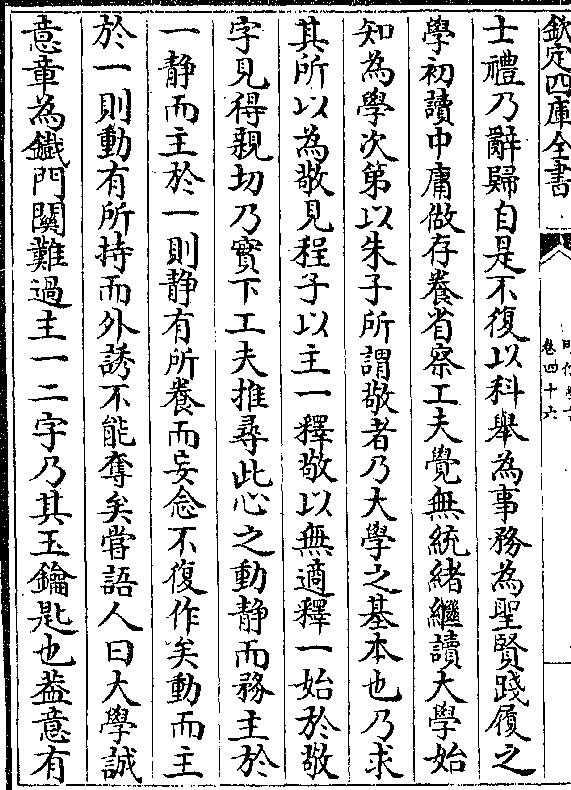 欽定四庫全書
卷四十六
士禮乃辭歸自是不復以科舉為事務為聖賢踐履之
學初讀中庸做存養省察工夫覺無統緒繼讀大學始
知為學次第以朱子所謂敬者乃大學之基本也乃求
其所以為敬見程子以主一釋敬以無適釋一始於敬
字見得親切乃實下工夫推尋此心之動静而務主於
一静而主於一則静有所養而妄念不復作矣動而主
於一則動有所持而外誘不能奪矣嘗語人曰大學誠
意章為鐵門關難過主一二字乃其玉鑰匙也葢意有